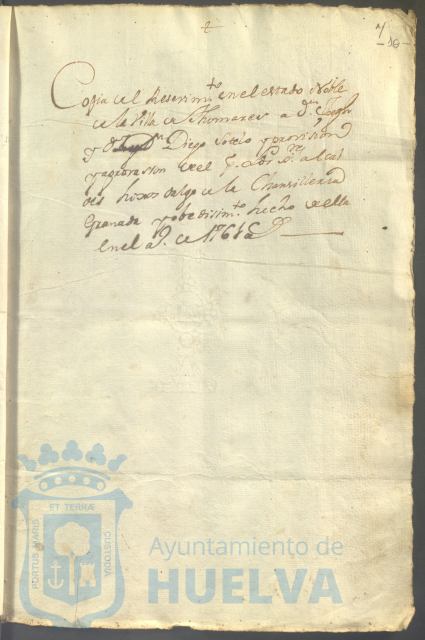 Copia del Resevim.to en el estado Noble
de la Villa de Thomares a d.n Joseph
y d.n Diego Sotelo y provision
y aprovasion de el S. Los S.res alcal
des hixos dalgo de la Chansilleria
Granada y obedesim.to hecho de ella
en el a.o de 1761
ET TERRÆ
PORTUS MARIS
CUSTODIA
Ayuntamiento de
HUELVA